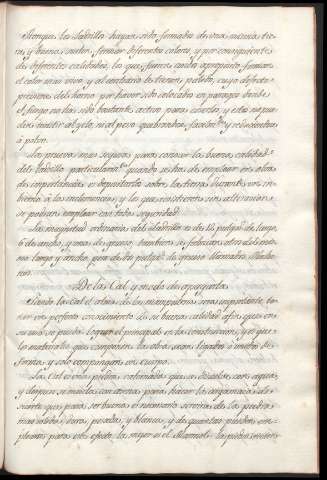 Aunque los Ladrillos hayan sido formados de una misma tier-
ra, y buena, suelen formar diferentes colores, y por consiguiente
de diferentes calidades, los que fueren cocidos apropósito forman
el color mas vivo, y al contrario le tienen palido, cuyo defecto
proviene del horno por haver sido colocados en parages donde
el fuego no ha sido bastante activo para cocerlos, y estos no pue-
den resistir al yelo, ni al peso quebrandose facilm.te y reduciendose
à polvo.
La prueva mas segura para conocer la buena calidad
del Ladrillo particularm.te quando se ha de emplear en obras
de importancia es depositarlo sobre la tierra durante un in-
bierno à las inclemencias y los que resistieren sin alteracion
se podran emplear con toda seguridad.
La magnitud ordinaria del Ladrillo es de 12 pulgad.s de largo,
6 de ancho, y una de grueso, tambien se fabrican otros del mis-
mo largo y ancho, pero de dos pulgad.s de grueso llamados
De la Cal y modo de apagarla.
Siendo la Cal el alma de la mamposteria, sera importante te-
ner un perfecto conocimiento de su buena calidad afin que en
su uso, se pueda lograr el principal en la construccion, y es que
los materiales que componen la obra, sean ligados à modo
forma y solo compongan un cuerpo.
La Cal es una piedra calcinada que se deslie con agua,
y despues se mezcla con arena para hacer la argamasa, de
suerte que para ser buena es necesario servirse de las piedras
mas solidas, duras, pesadas, y blancas, y de quantas pueden em-
plearse para este efecto, la mejor es el Marmol: las piedras